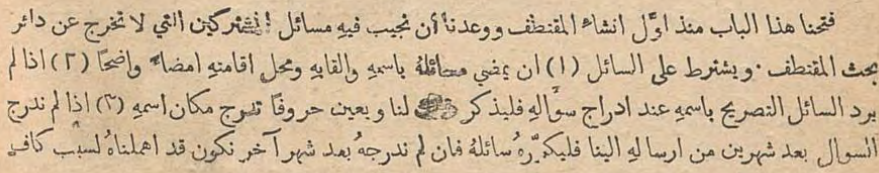 فتحنا هذا الباب منذ اوَّل انشاء المقتطف ووعدنا أن نجيب فيهِ مسائل المشتركين التي لا تخرج عن دائر
بحث المقتطف. ويشترط على السائل (١) ان يمضي مسائلهُ باسمهِ والقابهِ ومحل اقامتهِ امضاءً واضحًا (٢) اذا لم
يرد السائل التصريح باسمهِ عند ادراج سؤالهِ فليذكر لنا ويعين حروفًا تدرج مكان اسمهِ (٣) اذا لم ندرج
السوال بعد شهرين من ارسالهِ الينا فليكرّرهُ سائلهُ فان لم ندرجهُ بعد شهر آخر نكون قد اهملناهُ لسبب كافٍ